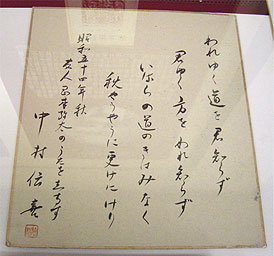 われゆく道を君知らず
君ゆく方をわれ知らず
いばらの道のきはみなく
秋やうやうに更けにけり
昭和五十四年秋
友人のうたをしるす
中村信喜